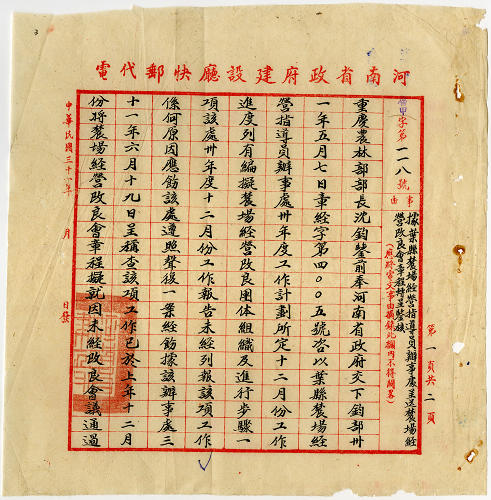 河南省政府建設廳快郵代電
建甲字第一一八號
事由
據葉縣農場經營指導員辦事處呈送農場經
營改良會章程轉呈鑒核
(應歸案文事由摘錄此欄內不得簡畧)
第一頁共二頁
重慶農林部部長沈鈞鑒前奉河南省政府交下鈞部卅
一年五月七日章經字第四〇〇五號咨以葉縣農場經
營指導員辦事處卅年度工作計劃所定十二月份工作
進度列有編擬農場經營改良團体組織及進行步驟一
項該處卅年度十二月份工作報告未經列報該項工作
係何原因應飭該處遵照聲復一案經飭據該辦事處三
十一年六月十九日呈稱查該項工作已於上年十二月
份將農場經營改良會章程擬就因未經改良會議通過
中華民國三十 年 月 日發